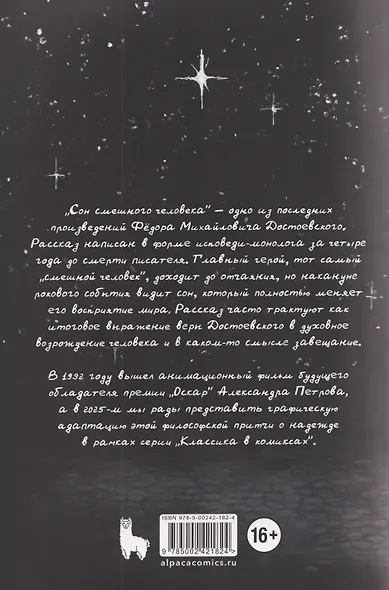 „Сон смешного человека" – одно из последних
произведений Фёдора Михайловича Достоевского.
Рассказ написан в форме исповеди-монолога за четыре
года до смерти писателя. Главный герой, тот самый
„смешной человек", доходит до отчаяния, но накануне
рокового события видит сон, который полностью меняет
его восприятие мира. Рассказ часто трактуют как
итоговое выражение веры Достоевского в духовное
возрождение человека и в каком-то смысле завещание.
В 1992 году вышел анимационный фильм будущего
обладателя премии „Оскар" Александра Петрова,
а в 2025-м мы рады представить графическую
адаптацию этой философской притчи о надежде
в рамках серии „Классика в комиксах".
ISBN 978-5-00242-182-4
9785002421824
16+
alpacacomics.ru